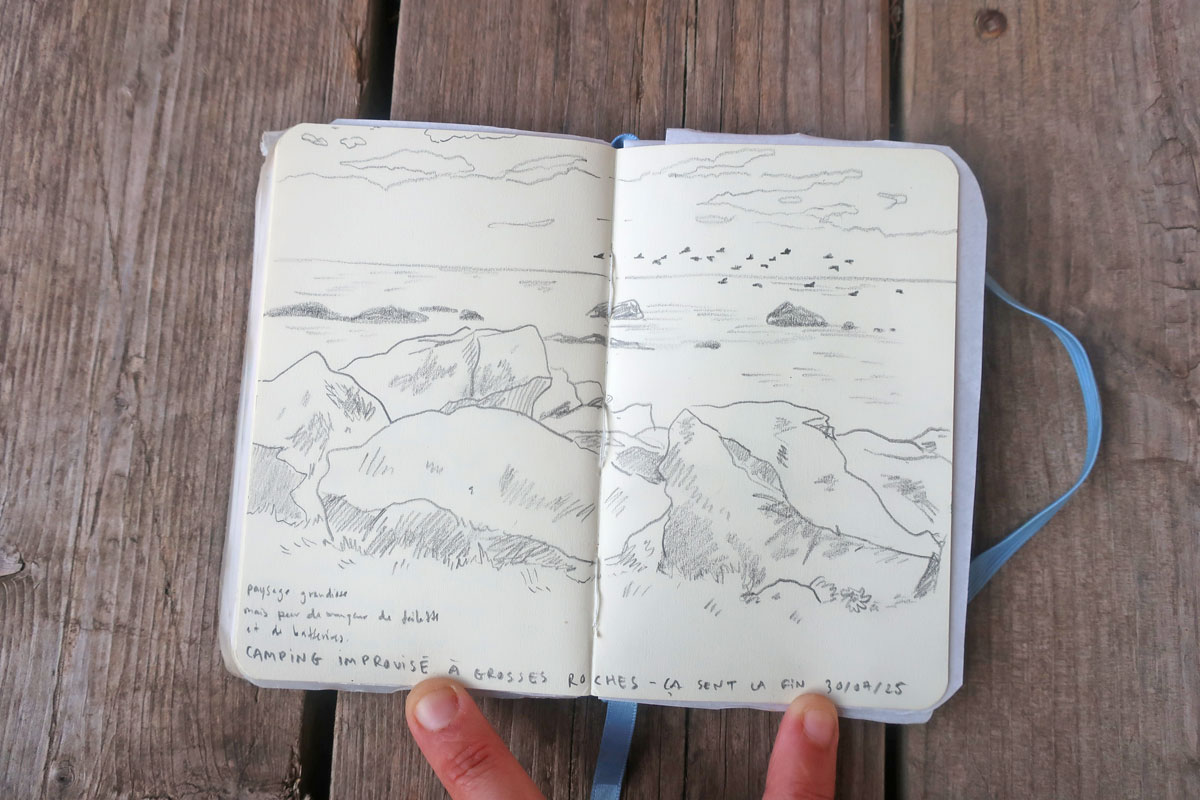 paysage grandiose
mais peur de manquer de toilette
et de batteries.
CAMPING IMPROVISÉ À GROSSES ROCHES - ÇA SENT LA FIN 30/07/25